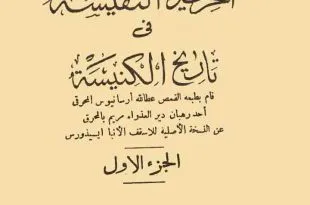 الخريدة النفيسة
فى
تاريخ الكنيسة
قام بطبعه القمص عطالله أرسانيوس المحرقى
أحد رهبان دير العذراء مريم بالمحرق
عن النسخة الأصلية للأسقف الأنبا ايسيذورس
الجزء الاول